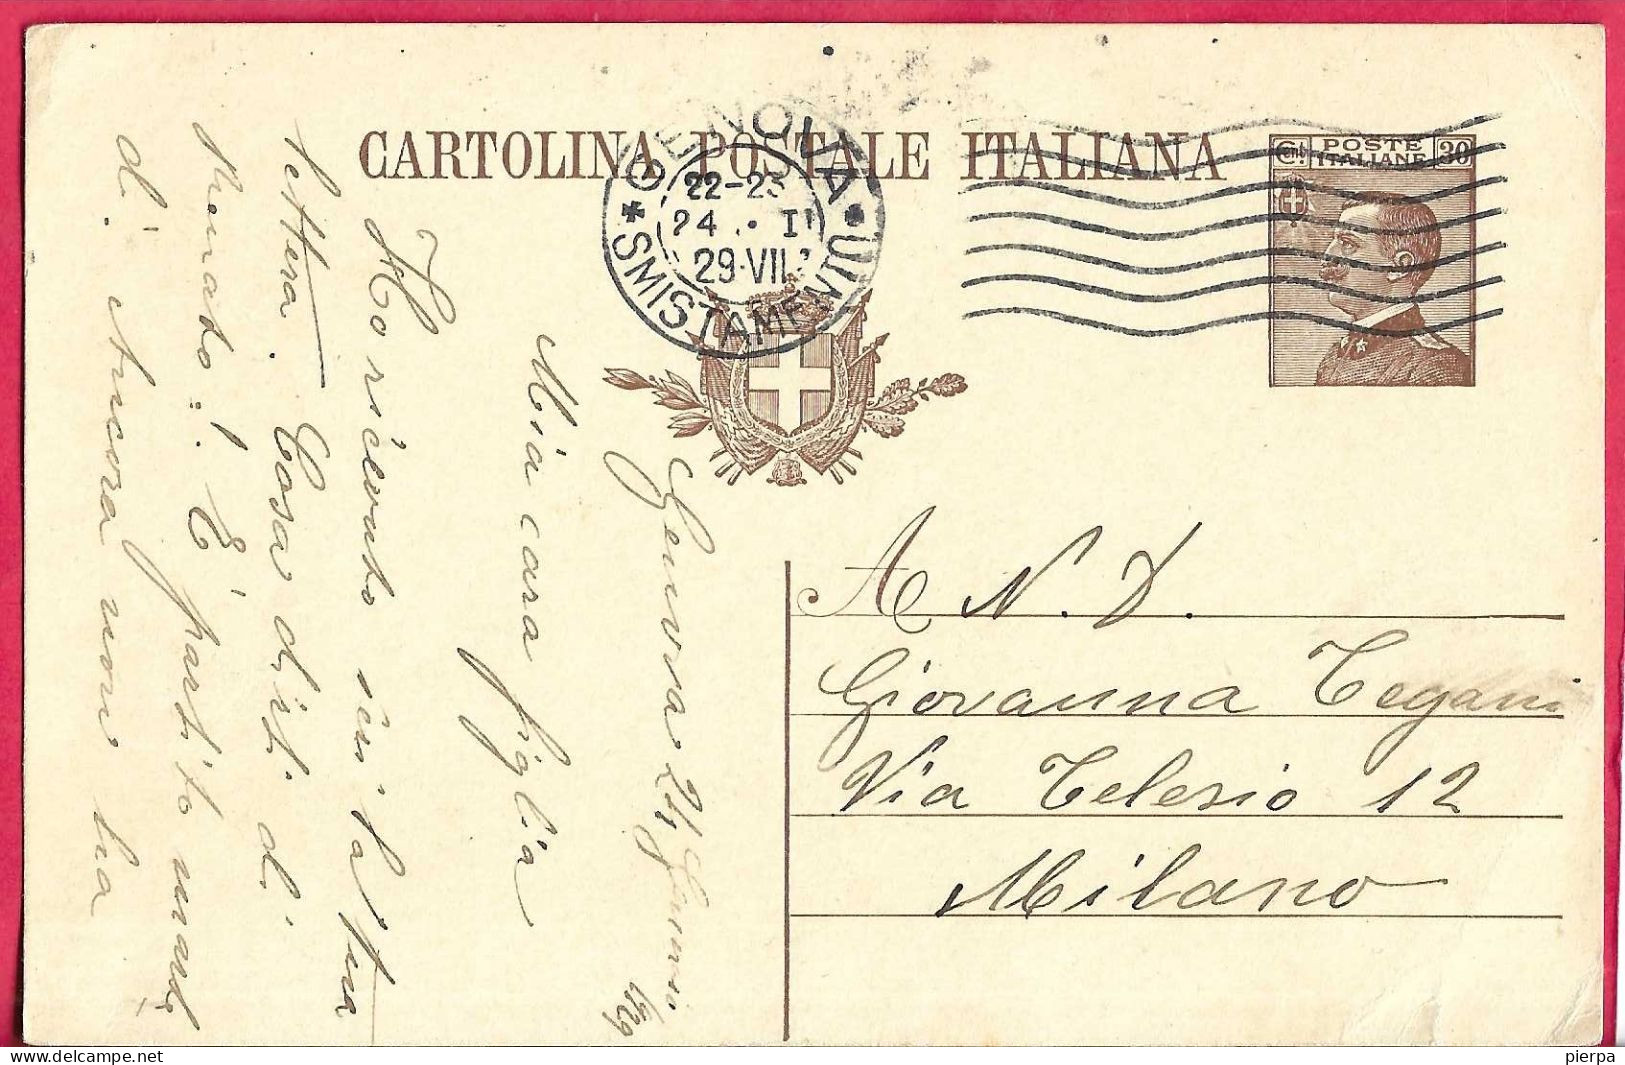 CARTOLINA POSTALE ITALIANA
Cent POSTE ITALIANE 30
GENOVA
22-23
24 . I
29·VII
* SMISTAMENTO
A N. D.
Giovanna Tegani
Via Telesio 12
Milano
Genova 24
1929
Mia cara figlia
Ho ricevuto la tua
lettera. Cosa diti di
È partito
di ancora non ha
delcampe.net
pierpa